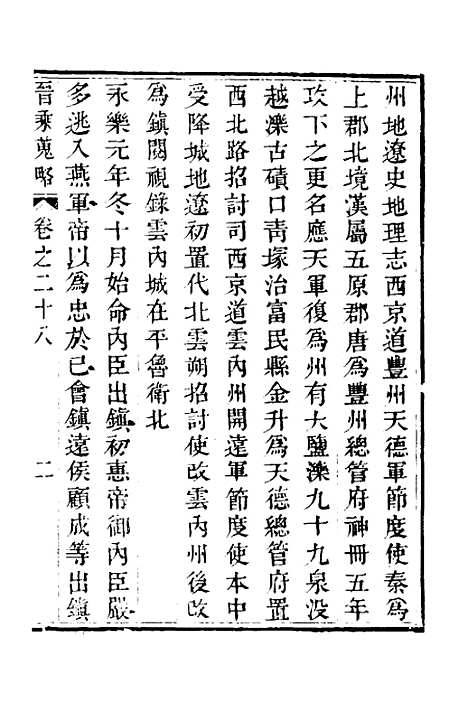 州地遼史地理志西京道豐州天德軍節度使秦爲
上郡北境漢屬五原郡唐爲豐州總管府神冊五年
攻下之更名應天軍復爲州有大鹽濼九十九泉没
越濼古磧口靑塚治富民縣金升爲天德總管府置
西北路招討司西京道雲內州開遠軍節度使本中
受降城地遼初置代北雲朔招討使改雲內州後改
爲鎮閱視錄雲內城在平魯衛北
永樂元年冬十月始命內臣出鎮初惠帝御內臣嚴
多逃入燕軍帝以爲忠於已會鎮遠侯顧成等出鎮
晉乘蒐略 卷之二十八 二